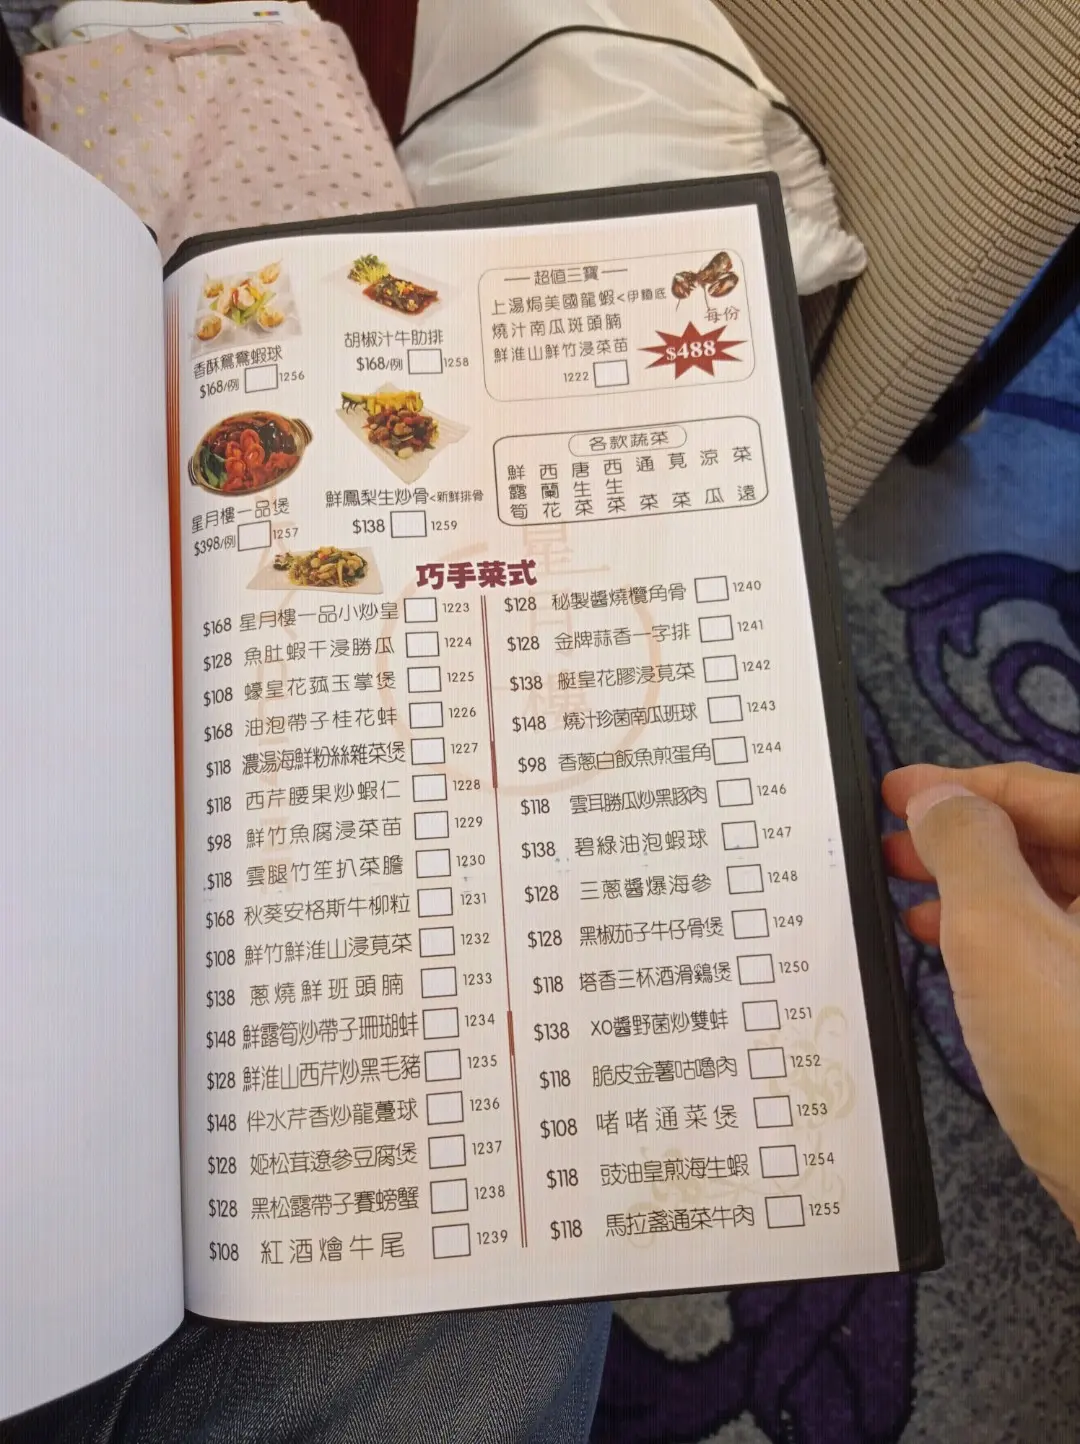 香酥鴛鴦蝦球
$168/例 1256
胡椒汁牛肋排
$168/例 1258
星月樓一品煲
$398/例 1257
鮮鳳梨生炒骨<新鮮排骨
$138 1259
超值三寶
上湯焗美國龍蝦<伊麵底
燒汁南瓜斑頭腩
鮮淮山鮮竹浸菜苗
1222
每份
$488
各款蔬菜
鮮露筍 西蘭花 唐生菜 西生菜 通菜 莧菜 涼瓜 菜遠
巧手菜式
$168 星月樓一品小炒皇 1223
$128 魚肚蝦干浸勝瓜 1224
$108 蠔皇花菰玉掌煲 1225
$168 油泡帶子桂花蚌 1226
$118 濃湯海鮮粉絲雜菜煲 1227
$118 西芹腰果炒蝦仁 1228
$98 鮮竹魚腐浸菜苗 1229
$118 雲腿竹笙扒菜膽 1230
$168 秋葵安格斯牛柳粒 1231
$108 鮮竹鮮淮山浸莧菜 1232
$138 蔥燒鮮班頭腩 1233
$148 鮮露筍炒帶子珊瑚蚌 1234
$128 鮮淮山西芹炒黑毛豬 1235
$148 伴水芹香炒龍躉球 1236
$128 姬松茸遼參豆腐煲 1237
$128 黑松露帶子賽螃蟹 1238
$108 紅酒燴牛尾 1239
$128 秘製醬燒欖角骨 1240
$128 金牌蒜香一字排 1241
$138 艇皇花膠浸莧菜 1242
$148 燒汁珍菌南瓜班球 1243
$98 香蔥白飯魚煎蛋角 1244
$118 雲耳勝瓜炒黑豚肉 1246
$138 碧綠油泡蝦球 1247
$128 三蔥醬爆海參 1248
$128 黑椒茄子牛仔骨煲 1249
$118 塔香三杯酒滑鷄煲 1250
$138 XO醬野菌炒雙蚌 1251
$118 脆皮金薯咕嚕肉 1252
$108 啫啫通菜煲 1253
$118 豉油皇煎海生蝦 1254
$118 馬拉盞通菜牛肉 1255
星月樓